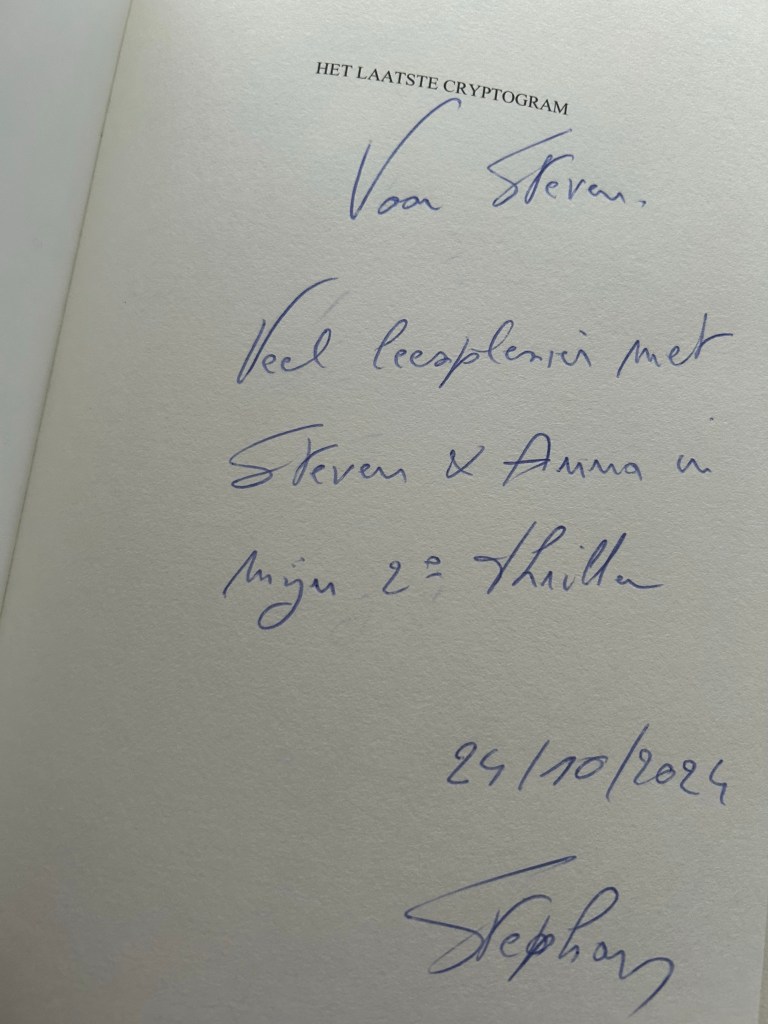 HET LAATSTE CRYPTOGRAM
Voor Steven.
Veel leesplezier met
Steven & Anna in
mijn 2e thriller
24/10/2024
Stephan